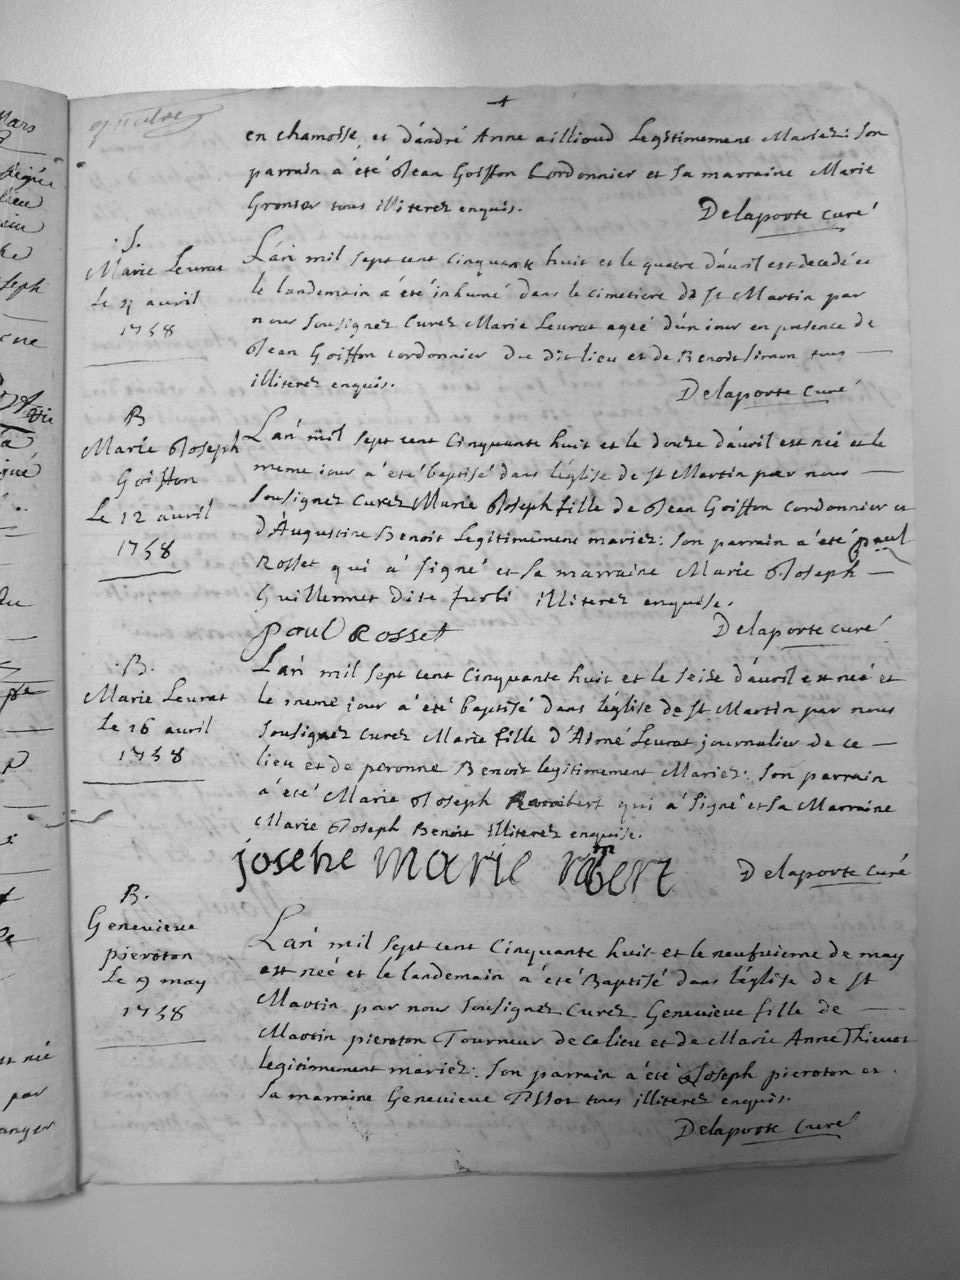 en chamoise, et d'andré Anne aillioud Legitimement Mariez: Son
parrain à été Jean Goiffon Cordonnier et Sa marraine Marie
Gronier tous illiterez enquis.
Delaporte curé
.S.
Marie Leurat
Le 4 avril
1758
L'an mil sept cent Cinquante huit et le quatre d'auril est decedée et
le landemain à été inhumé dans le cimetiere de St Martin par
nous Sousignez Curez Marie Leurat ageé d'un iour en presence de
Jean Goiffon cordonnier du dit lieu et de Benoit Simon tous
illiterez enquis.
Delaporte Curé
B
Marie Joseph
Goiffon
Le 12 avril
1758
L'an mil sept cent Cinquante huit et le douze d'auril est neé et le
meme iour a été baptisé dans l'église de St Martin par nous
Sousignez Curez Marie Joseph fille de Jean Goiffon cordonnier et
d'Augustine Benoit Legitimement mariez: Son parrain a été paul
Rosset qui à signé et Sa marraine Marie Joseph
Guillermet dite furbi illiterez enquise.
Delaporte curé
paul Rosset
.B.
Marie Leurat
Le 16 avril
1758
L'an mil sept cent Cinquante huit et le seise d'auril est neé et
le meme jour à été baptisé dans l'église de St Martin par nous
Sousignez Curez Marie fille d'Aimé Leurat journalier de ce
lieu et de peronne Benoit legitimement Mariez: Son parrain
à été Marie Joseph Rambert qui a Signé et Sa Marraine
Marie Joseph Benoit illiterez enquise.
josehe marie rïbert
Delaporte Curé
B.
Genevieve
pieroton
Le 9 may
1758
L'an mil sept cent Cinquante huit et le neufvieme de may
est neé et le landemain à été Baptisé dans l'église de St
Martin par nous Sousignez Curez Genevieve fille de
Martin pieroton Tourneur de ce lieu et de Marie Anne Thievet
legitimement mariez: Son parrain a été Joseph pieroton et
Sa marraine Genevieve Tissot tous illiterez enquis.
Delaporte Curé